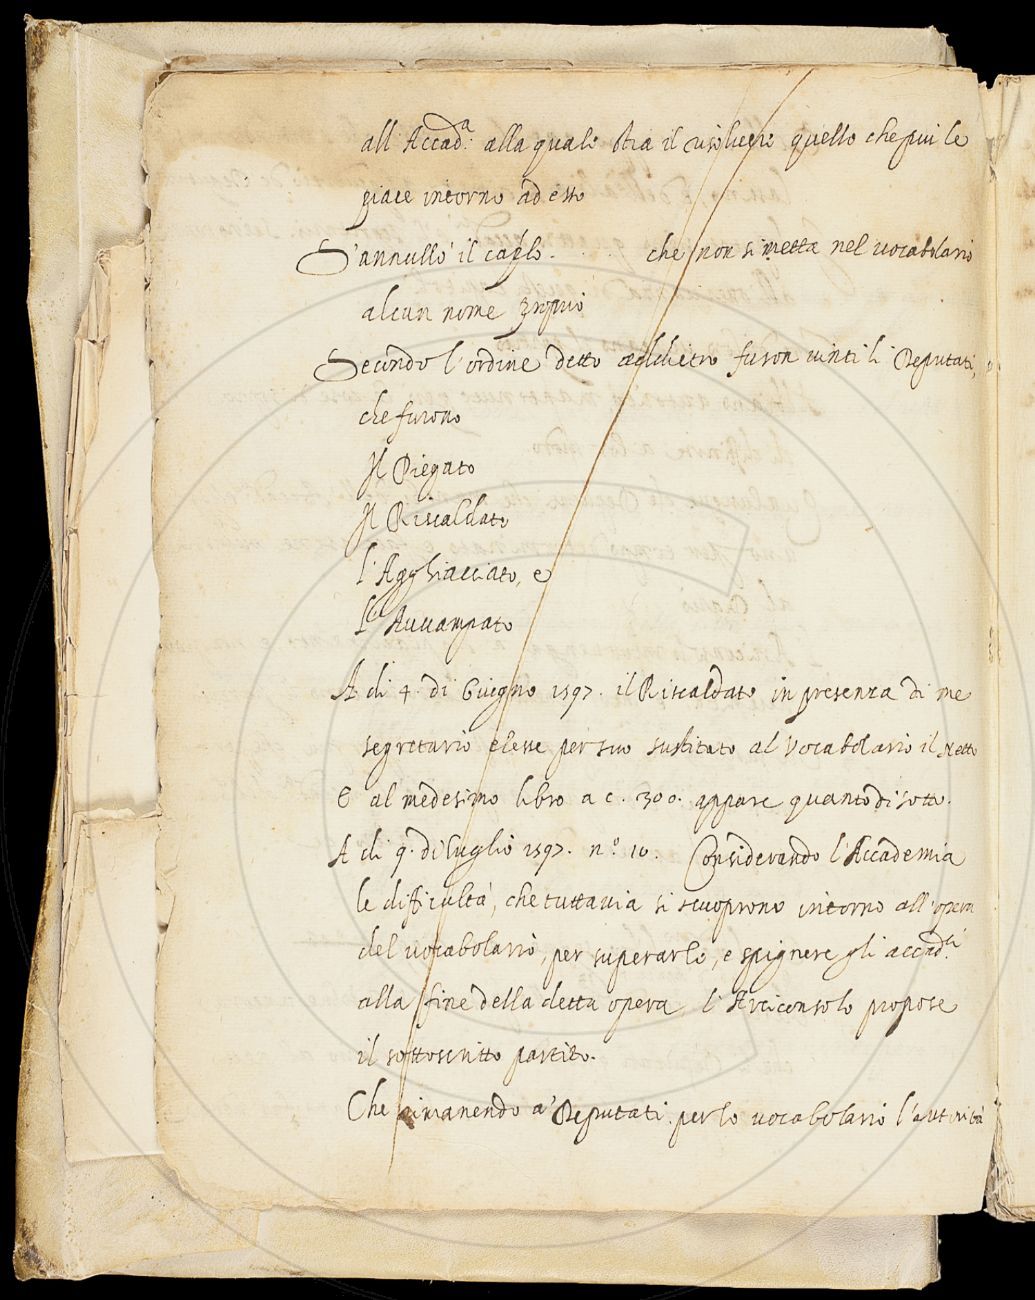 all'Accad.a alla quale stia il risolvere quello che piu le
piace intorno ad esso
S'annullò il caplo. . . . che non si metta nel vocabolario
alcun nome proprio
Secondo l'ordine detto addietro furon vinti li Deputati,
che furono
Il Piegato
Il Riscaldato
l'Agghiacciato, e
L'Avvampato
A di 4. di Giugno 1597. il Riscaldato in presenza di me
segretario elesse per suo sustituto al Vocabolario il Netto
E al medesimo libro a c. 300. appare quanto di sotto.
A di 9. di luglio 1597. n.o 10. Considerando l'Accademia
le difficultà, che tuttavia si scuoprono intorno all'opera
del vocabolario, per superarle, e spignere gli accad.ci
alla fine della detta opera, l'Arciconsolo propose
il sottoscritto partito.
Che rimanendo a' Deputati per lo vocabolario l'autorità